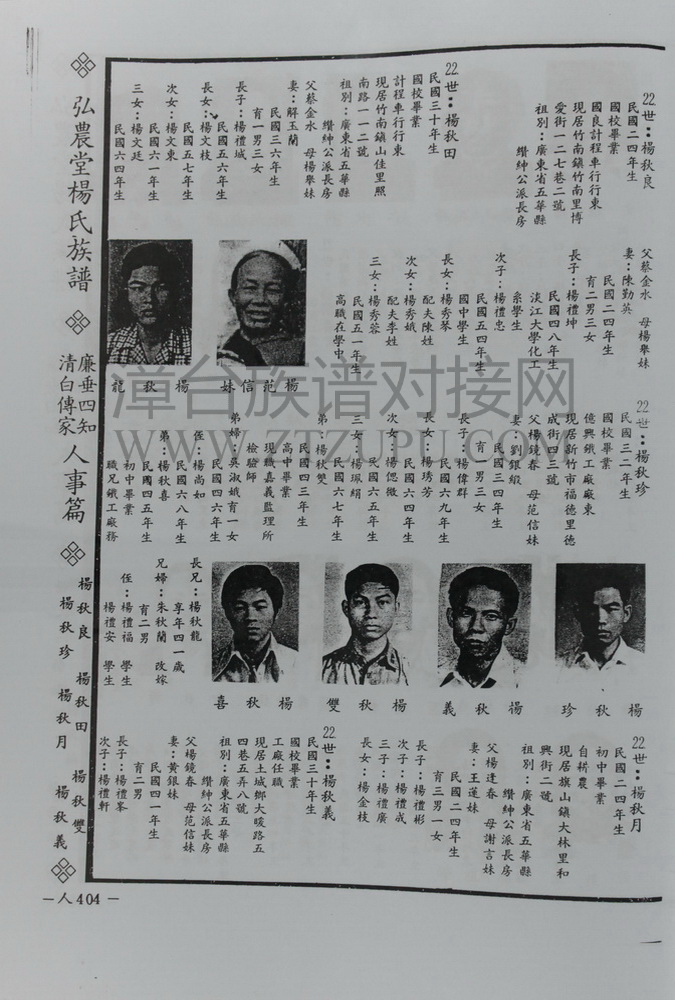 22世：楊秋良
民國二四年生
國校畢業
國良計程車行行東
現居竹南鎮竹南里博
愛街一二七巷二號
祖別：廣東省五華縣
纘紳公派長房
父蔡金水　母楊舉妹
妻：陳勤英
民國二四年生
育二男三女
長子：楊禮坤
民國四八年生
淡江大學化工
系學生
次子：楊禮忠
民國五四年生
國中學生
長女：楊秀琴
配夫陳姓
次女：楊秀娥
配夫李姓
三女：楊秀蓉
民國五一年生
高職在學中
22世：楊秋田
民國三十年生
國校畢業
計程車行行東
現居竹南鎮山佳里照
南路一一二號
祖別：廣東省五華縣
纘紳公派長房
父蔡金水　母楊舉妹
妻：解玉蘭
民國三六年生
育一男三女
長子：楊禮城
民國五六年生
長女：楊文枝
民國五七年生
次女：楊文東
民國六一年生
三女：楊文廷
民國六四年生
楊范信妹
楊秋龍
22世：楊秋珍
民國三二年生
國校畢業
億興鐵工廠廠東
現居新竹市福德里德
成街四三號
父楊鏡春　母范信妹
妻：劉銀緞
民國三四年生
育一男三女
長子：楊偉群
民國六九年生
長女：楊琇芳
民國六四年生
次女：楊偲微
民國六五年生
三女：楊珮絹
民國六七年生
弟：楊秋雙
民國四三年生
高中畢業
現職嘉義監理所
檢驗師
弟婦：吳淑娥育一女
民國四六年生
侄：楊尚如
民國六八年生
弟：楊秋喜
民國四五年生
初中畢業
職兄鐵工廠務
長兄：楊秋龍
享年四一歲
兄婦：朱秋蘭　改嫁
育二男
侄：楊禮福　學生
楊禮安　學生
楊秋珍
楊秋義
楊秋雙
楊秋喜
22世：楊秋月
民國二四年生
初中畢業
自耕農
現居旗山鎮大林里和
興街二號
祖別：廣東省五華縣
纘紳公派長房
父楊逢春　母謝言妹
妻：王蓮妹
民國二四年生
育三男一女
長子：楊禮彬
次子：楊禮成
三子：楊禮廣
長女：楊金枝
22世：楊秋義
民國三十年生
國校畢業
工廠任職
現居土城鄉大暖路五
四巷五弄八號
祖別：廣東省五華縣
纘紳公派長房
父楊鏡春　母范信妹
妻：黃銀妹
民國四一年生
育二男
長子：楊禮峯
次子：楊禮軒
弘農堂楊氏族譜
廉垂四知
清白傳家
人事篇
楊秋良　楊秋田　楊秋雙
楊秋珍　楊秋月　楊秋義
－人404－
漳台族谱对接网
WWW.ZTZUPU.COM